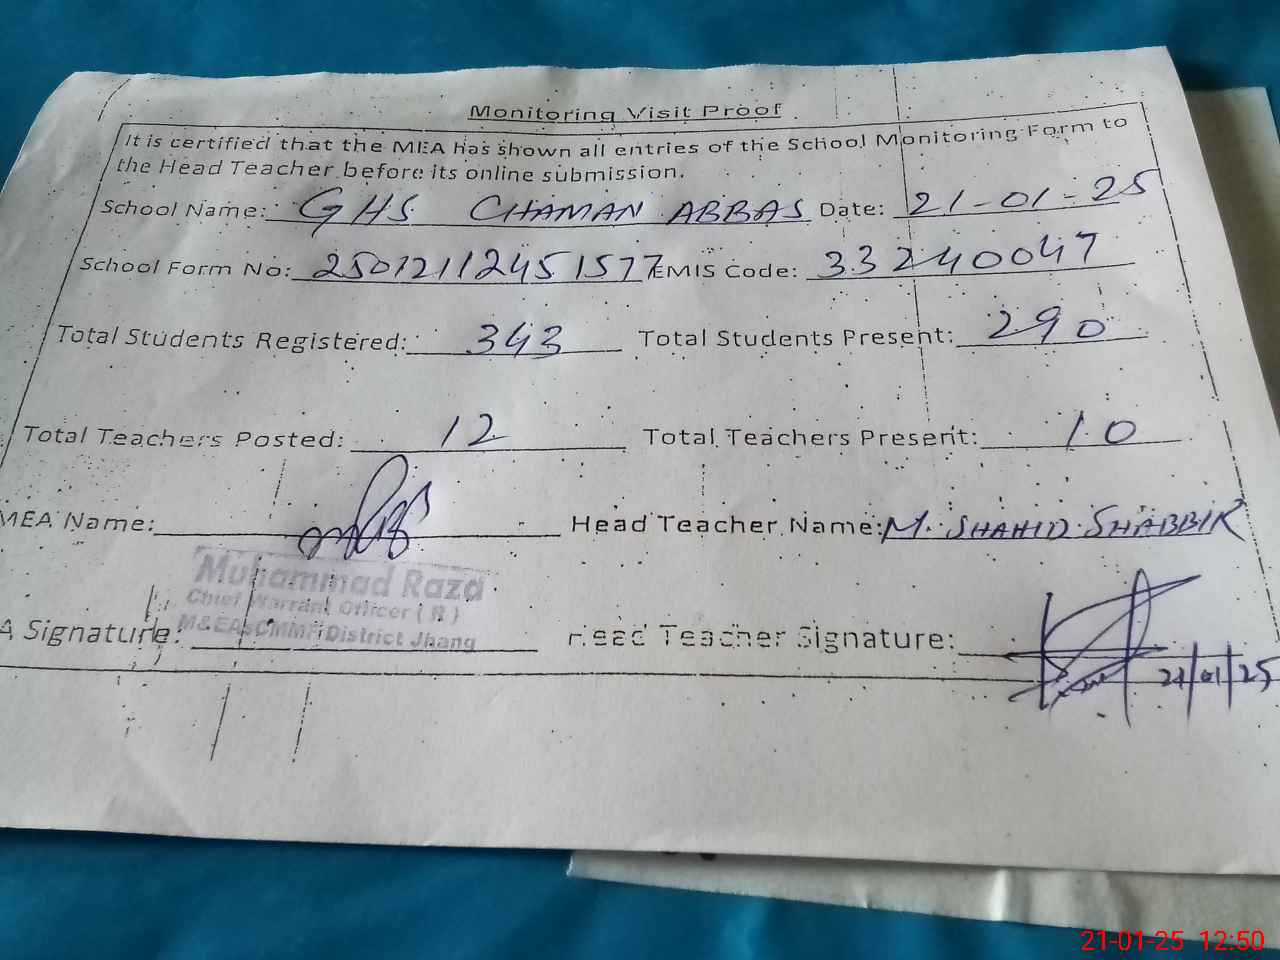 Monitoring Visit Proof
It is certified that the MEA has shown all entries of the School Monitoring Form to
the Head Teacher before its online submission.
School Name: GHS CHAMAN ABBAS Date: 21-01-25
School Form No: 25012112451577 EMIS Code: 33240047
Total Students Registered: 343 Total Students Present: 290
Total Teachers Posted: 12 Total Teachers Present: 10
MEA Name: Head Teacher Name: M. SHAHID SHABBIR
Muhammad Raza
Chief Warrant Officer ( R )
M&EAsCMMF District Jhang
A Signature: Head Teacher Signature:
21/01/25
21-01-25 12:50